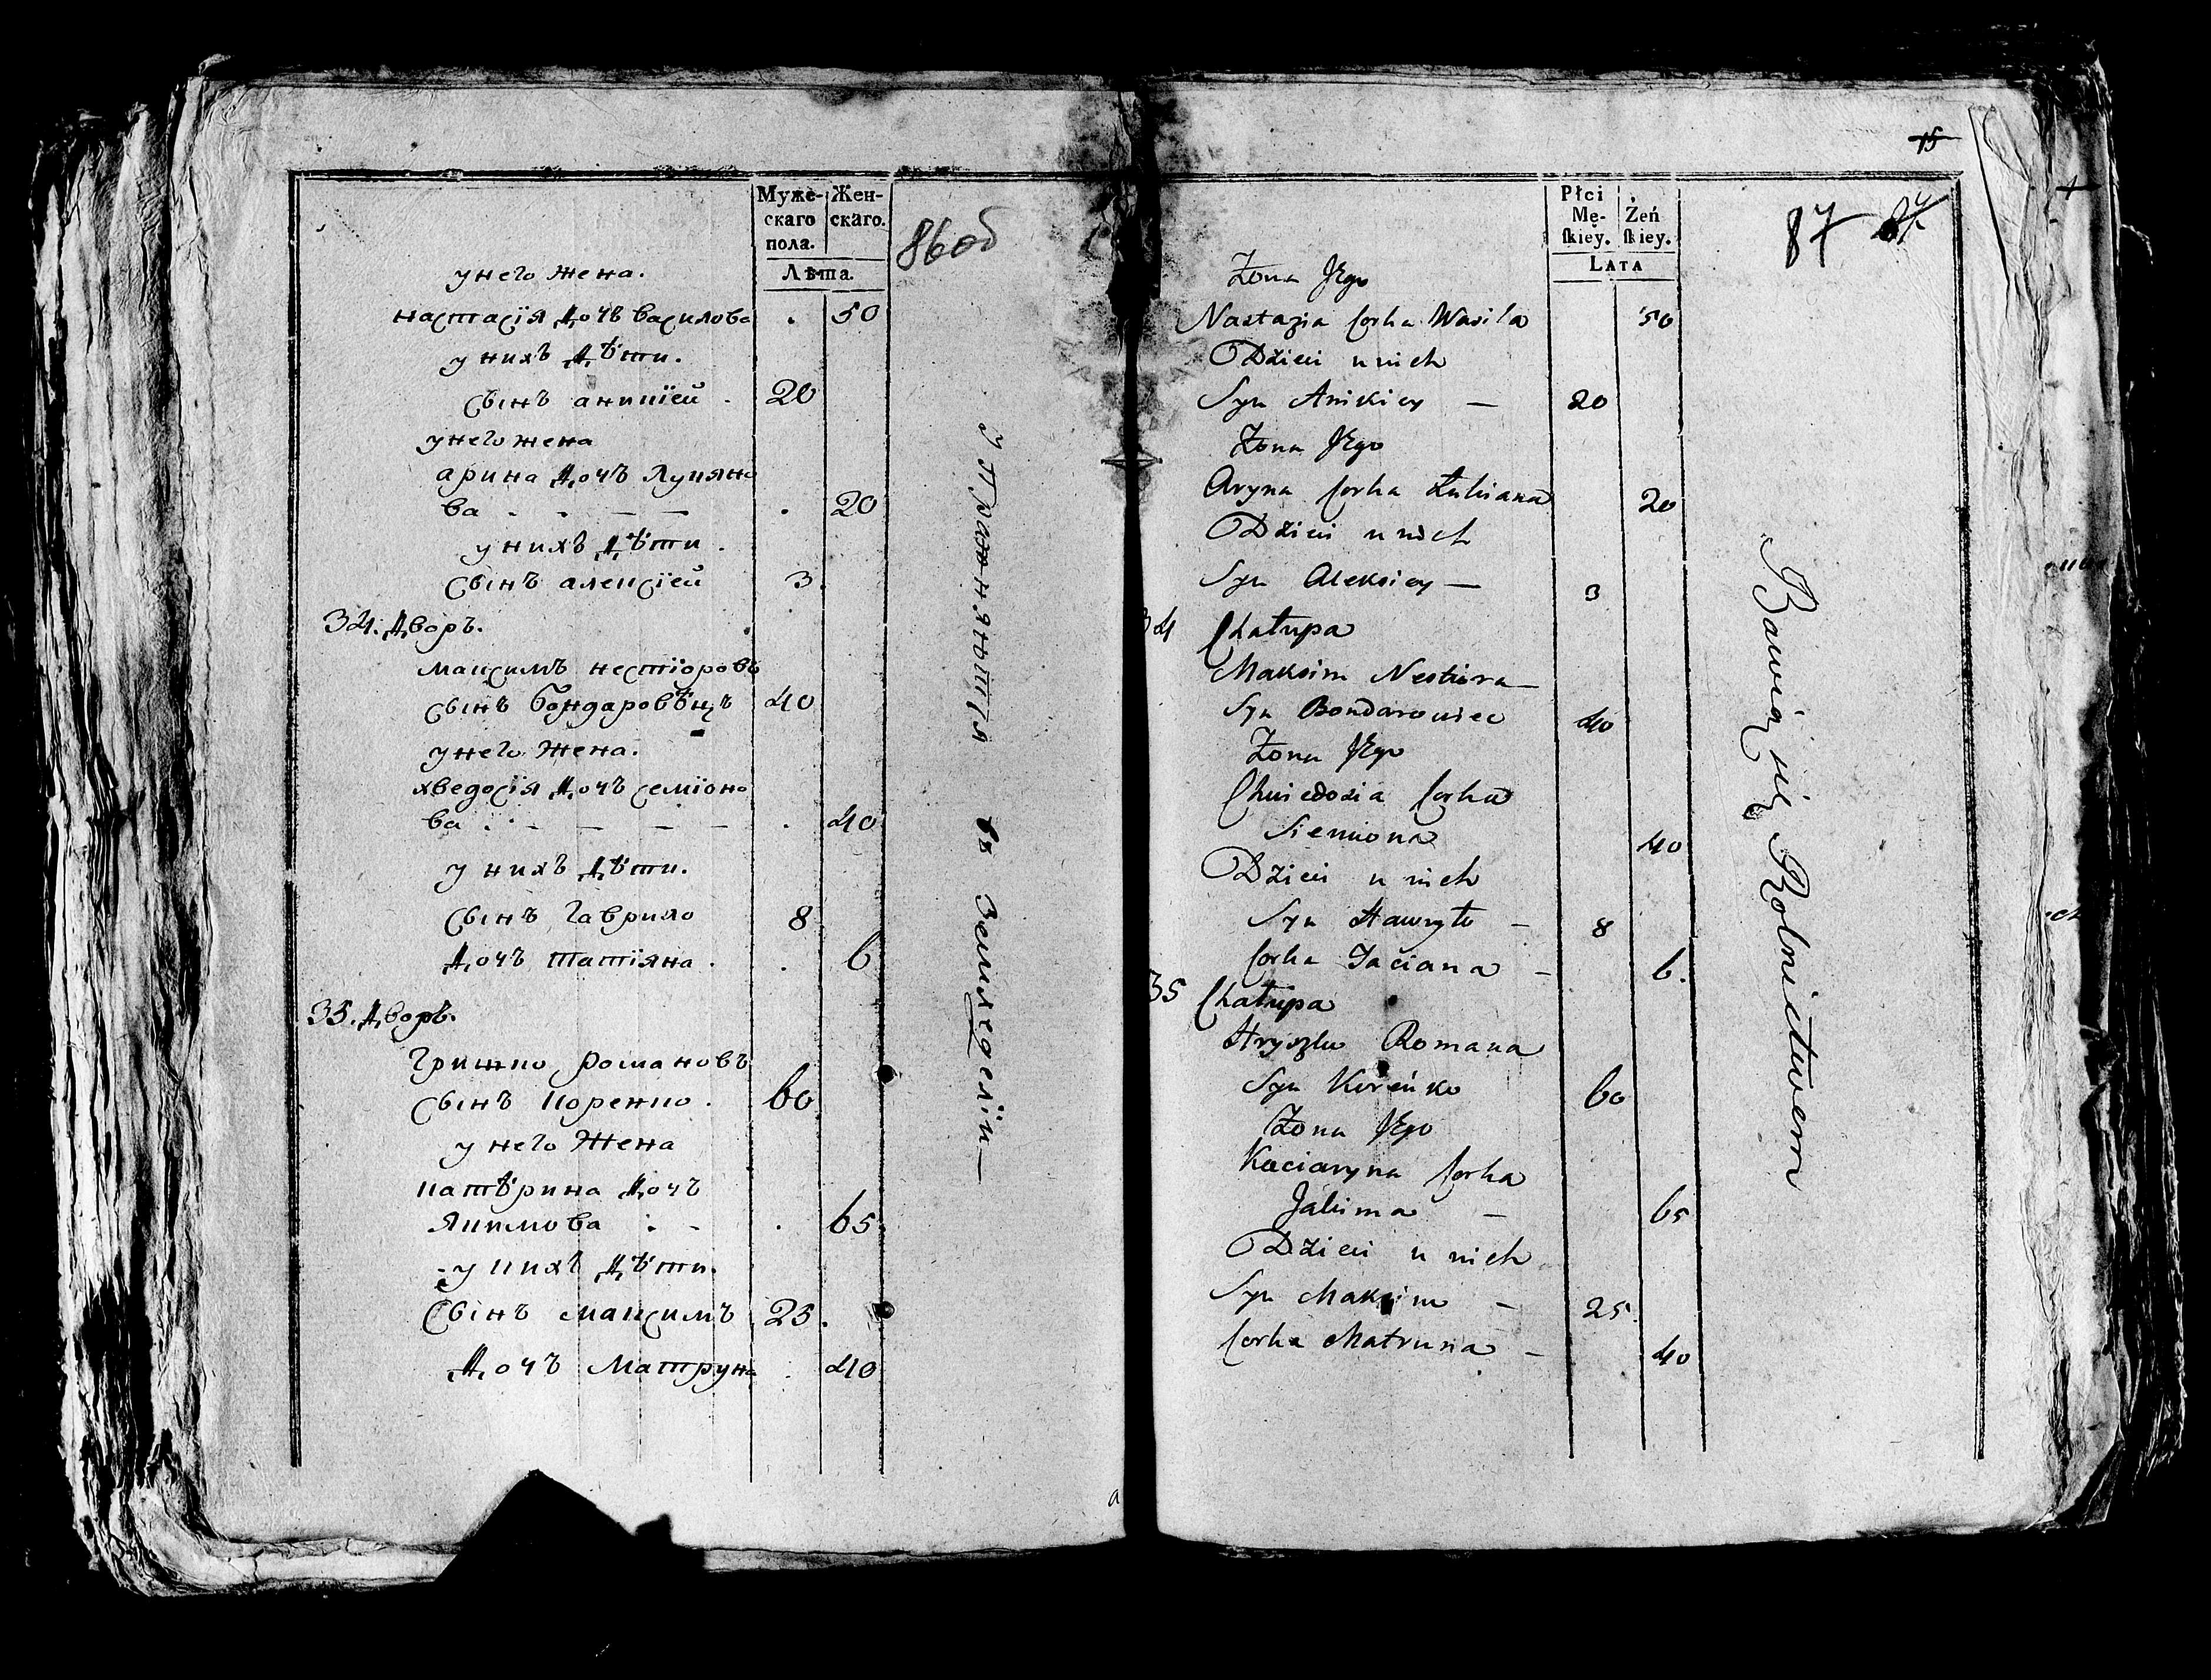 Муже-
скаго
пола.
Жен-
скаго.
Лѣта.
86об
у него жена.
настасія дочъ василова . 50
у нихъ дѣти.
сынъ аникіей . 20
у него жена
арина дочъ Лукяно
ва . - - — . 20
у нихъ дѣти.
сынъ алексіей 3.
34. дворъ.
максимъ нестіоровъ
сынъ бондаровѣцъ 40
у него жена.
хведосія дочъ семіоно
ва . - — — - . 40
у нихъ дѣти.
сынъ гаврило 8
дочъ татіяна . . 6
35. дворъ.
Гришко романовъ
сынъ коренко . 60
у него жена
катѣрина дочъ
якимова . - . 65.
у нихъ дѣти.
сынъ максимъ 25.
дочъ матруна . 40
Упражняются въ земледеліи —
15
Płci
Mę-
skiey.
Żeń
skiey.
Lata
87
Żona Jego
Nastazia Corka Wasila 50
Dzieci u nich
Syn Anikiey — 20
Żona Jego
Aryna Corka Łukiana 20
Dzieci u nich
Syn Aleksiey — 3
34 Chałupa
Maksim Nestiora —
Syn Bondarowiec 40
Żona Jego
Chwiedosia Corka
Siemiona 40
Dzieci u nich
Syn Hawryło - 8
Corka Taciana - 6.
35 Chałupa
Hryszko Romana
Syn Koreńko 60
Żona Jego
Kaciaryna Corka
Jakima - 65
Dzieci u nich
Syn Maksim - 25.
Corka Matruna - 40
Bawią się Rolnictwem